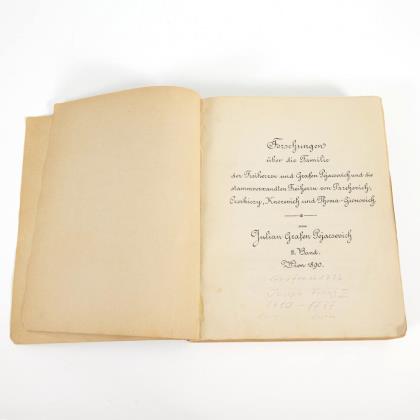 Forschungen
über die Familie
der Freiherren und Grafen Pejacsevich und die
stammverwandten Freiherrn von Parchevich,
Czerkiczy, Knezevich und Thoma-Gionovich
von
Julian Grafen Pejacsevich
II. Band.
Wien 1890.